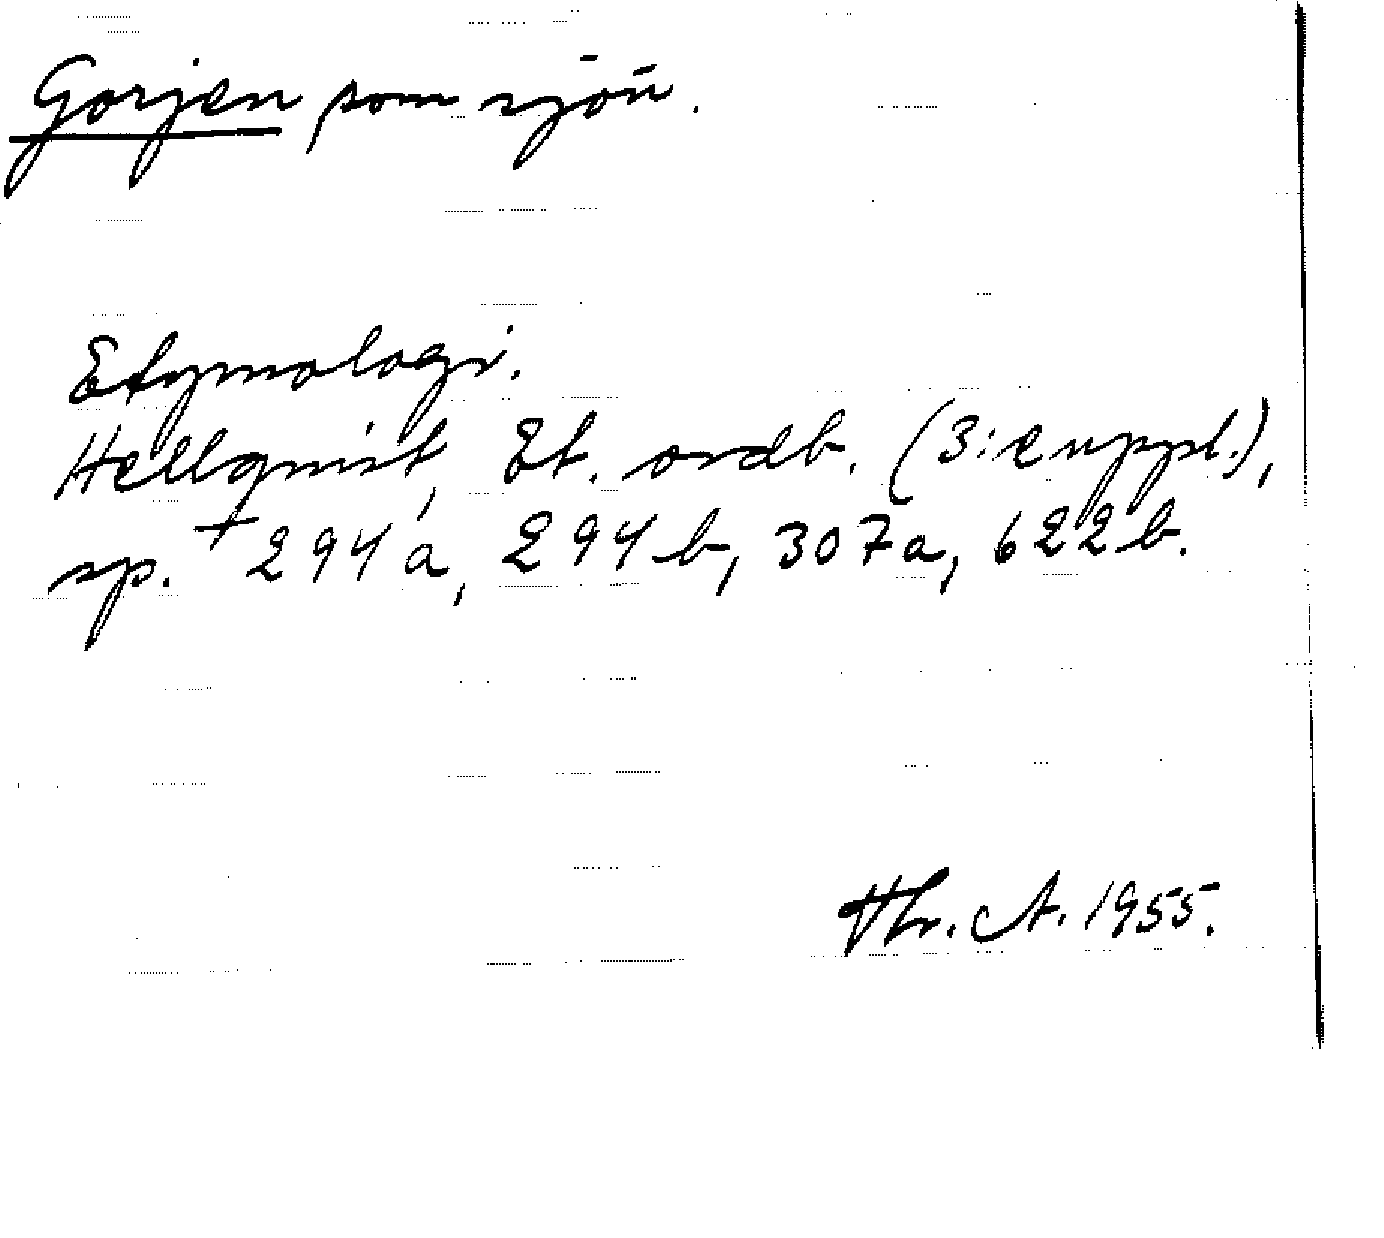 Gorjen som sjön.
Etymologi.
Hellqvist, Et. ordb. (3:e uppl.),
sp. + 294 a, 294 b, 307 a, 622 b.
Hr. A. 1955.